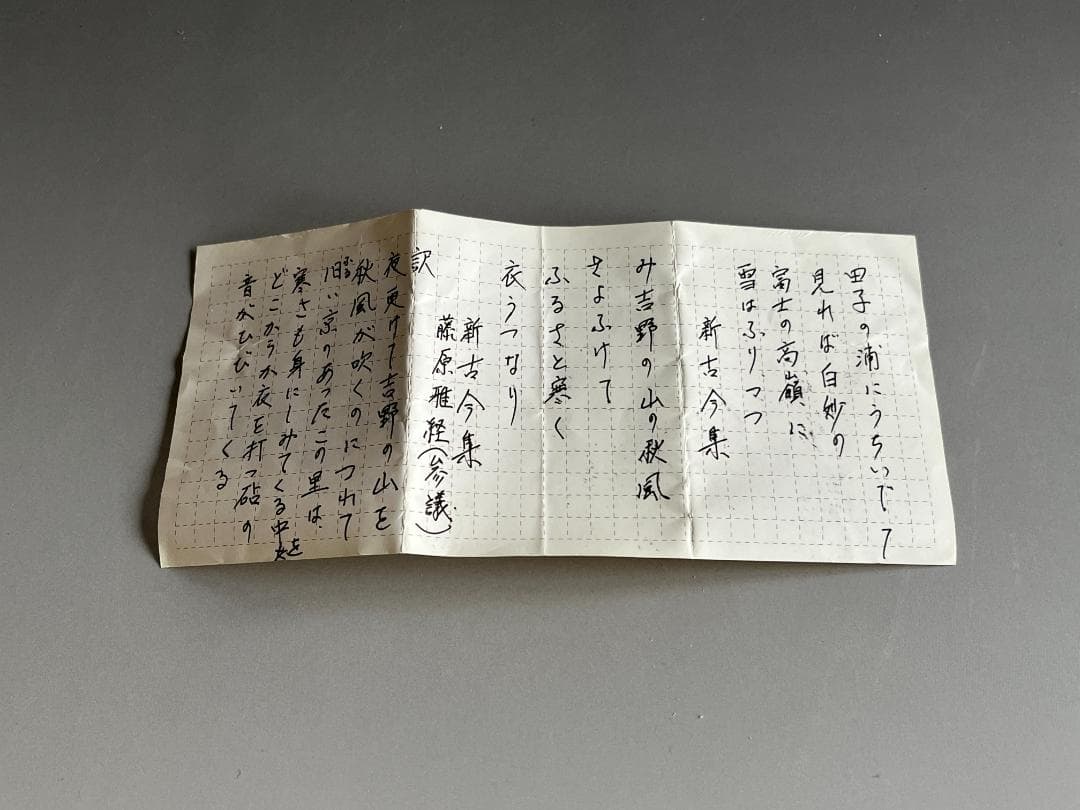 田子の浦にうちいでて
見れば白妙の
富士の高嶺に
雪はふりつつ
新古今集
み吉野の山の秋風
さよふけて
ふるさと寒く
衣うつなり
新古今集
藤原雅経(参議)
訳
夜更けて吉野の山を
秋風が吹くのにつれて
旧い京のあったこの里は、
寒さも身にしみてくる中を
どこからか衣を打つ砧の
音がひびいてくる